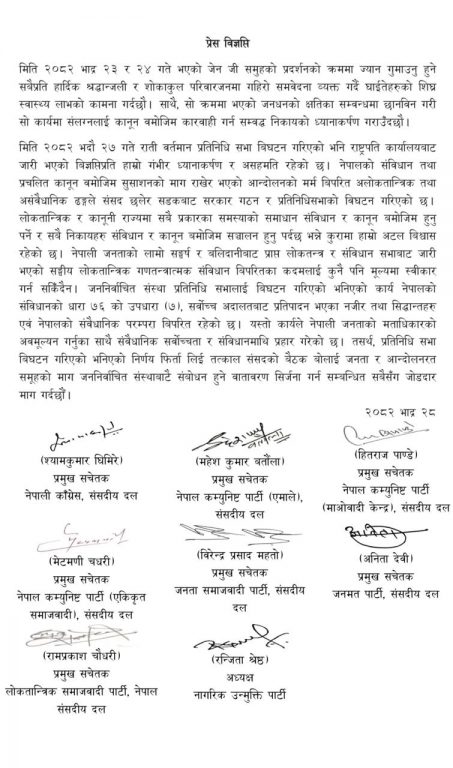 प्रेस विज्ञप्ति
मिति २०८२ भाद्र २३ र २४ गते भएको जेन जी समुहको प्रदर्शनको क्रममा ज्यान गुमाउनु हुने
सबैप्रति हार्दिक श्रद्धान्जली र शोकाकुल परिवारजनमा गहिरो समवेदना व्यक्त गर्दै घाईतेहरुको शिघ्र
स्वास्थ्य लाभको कामना गर्दछौं। साथै, सो क्रममा भएको जनधनको क्षतिका सम्वन्धमा छानविन गरी
सो कार्यमा संलग्नलाई कानून वमोजिम कारवाही गर्न सम्वद्ध निकायको ध्यानाकर्षण गराउँदछौं।
मिति २०८२ भदौ २७ गते राती वर्तमान प्रतिनिधि सभा विघटन गरिएको भनि राष्ट्रपति कार्यालयवाट
जारी भएको विज्ञप्तिप्रति हाम्रो गंभीर ध्यानाकर्षण र असहमति रहेको छ। नेपालको संविधान तथा
प्रचलित कानून वमोजिम सुसाशनको माग राखेर भएको आन्दोलनको मर्म विपरित अलोकतान्त्रिक तथा
असंवैधानिक ढङ्गले संसद छलेर सडकबाट सरकार गठन र प्रतिनिधिसभाको विघटन गरिएको छ।
लोकतान्त्रिक र कानूनी राज्यमा सवै प्रकारका समस्याको समाधान संविधान र कानून वमोजिम हुनु
पर्ने र सवै निकायहरु संविधान र कानून वमोजिम सञ्चालन हुनु पर्दछ भन्ने कुरामा हाम्रो अटल विश्वास
रहेको छ। नेपाली जनताको लामो सङ्घर्ष र बलिदानीवाट प्राप्त लोकतन्त्र र संविधान सभावाट जारी
भएको सङ्घीय लोकतान्त्रिक गणतन्त्रात्मक संविधान विपरितका कदमलाई कुनै पनि मूल्यमा स्वीकार
गर्न सकिँदैन। जननिर्वाचित संस्था प्रतिनिधि सभालाई विघटन गरिएको भनिएको कार्य नेपालको
संविधानको धारा ७६ को उपधारा (७), सर्वोच्च अदालतबाट प्रतिपादन भएका नजीर तथा सिद्धान्तहरु
एवं नेपालको संवैधानिक परम्परा विपरित रहेको छ। यस्तो कार्यले नेपाली जनताको मताधिकारको
अवमूल्यन गर्नुका साथै संवैधानिक सर्वोच्चता र संविधानमाथि प्रहार गरेको छ। तसर्थ, प्रतिनिधि सभा
विघटन गरिएको भनिएको निर्णय फिर्ता लिई तत्काल संसदको बैठक वोलाई जनता र आन्दोलनरत
समूहको माग जननिर्वाचित संस्थाबाटै संबोधन हुने वातावरण सिर्जना गर्न सम्बन्धित सवैसँग जोडदार
माग गर्दछौं।
२०८२ भाद्र २८
(श्यामकुमार घिमिरे)
प्रमुख सचेतक
नेपाली काँग्रेस, संसदीय दल
(महेश कुमार वर्तौला)
प्रमुख सचेतक
नेपाल कम्युनिष्ट पार्टी (एमाले),
संसदीय दल
(हितराज पाण्डे)
प्रमुख सचेतक
नेपाल कम्युनिष्ट पार्टी
(माओवादी केन्द्र), संसदीय दल
(मेटमणी चधरी)
प्रमुख सचेतक
नेपाल कम्युनिष्ट पार्टी (एकिकृत
समाजवादी), संसदीय दल
(विरेन्द्र प्रसाद महतो)
प्रमुख सचेतक
जनता समाजवादी पार्टी, संसदीय
दल
(अनिता देवी)
प्रमुख सचेतक
जनमत पार्टी, संसदीय दल
(रामप्रकाश चौधरी)
प्रमुख सचेतक
लोकतान्त्रिक समाजवादी पार्टी, नेपाल
संसदीय दल
(रन्जिता श्रेष्ठ)
अध्यक्ष
नागरिक उन्मुक्ति पार्टी